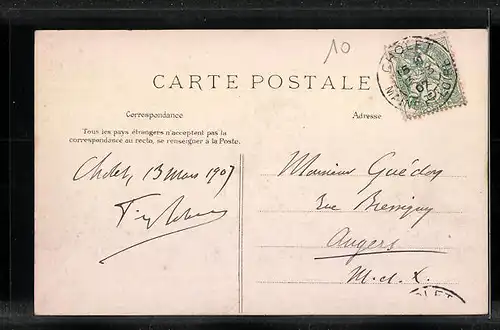 10
CHOLET
CARTE POSTALE
Correspondance
Adresse
Tous les pays étrangers n'acceptent pas la
correspondance au recto, se renseigner à la Poste.
Cholet, 13 mars 1907
Monsieur Guédon
Rue Bressigny
Angers
M. et L.
OLET